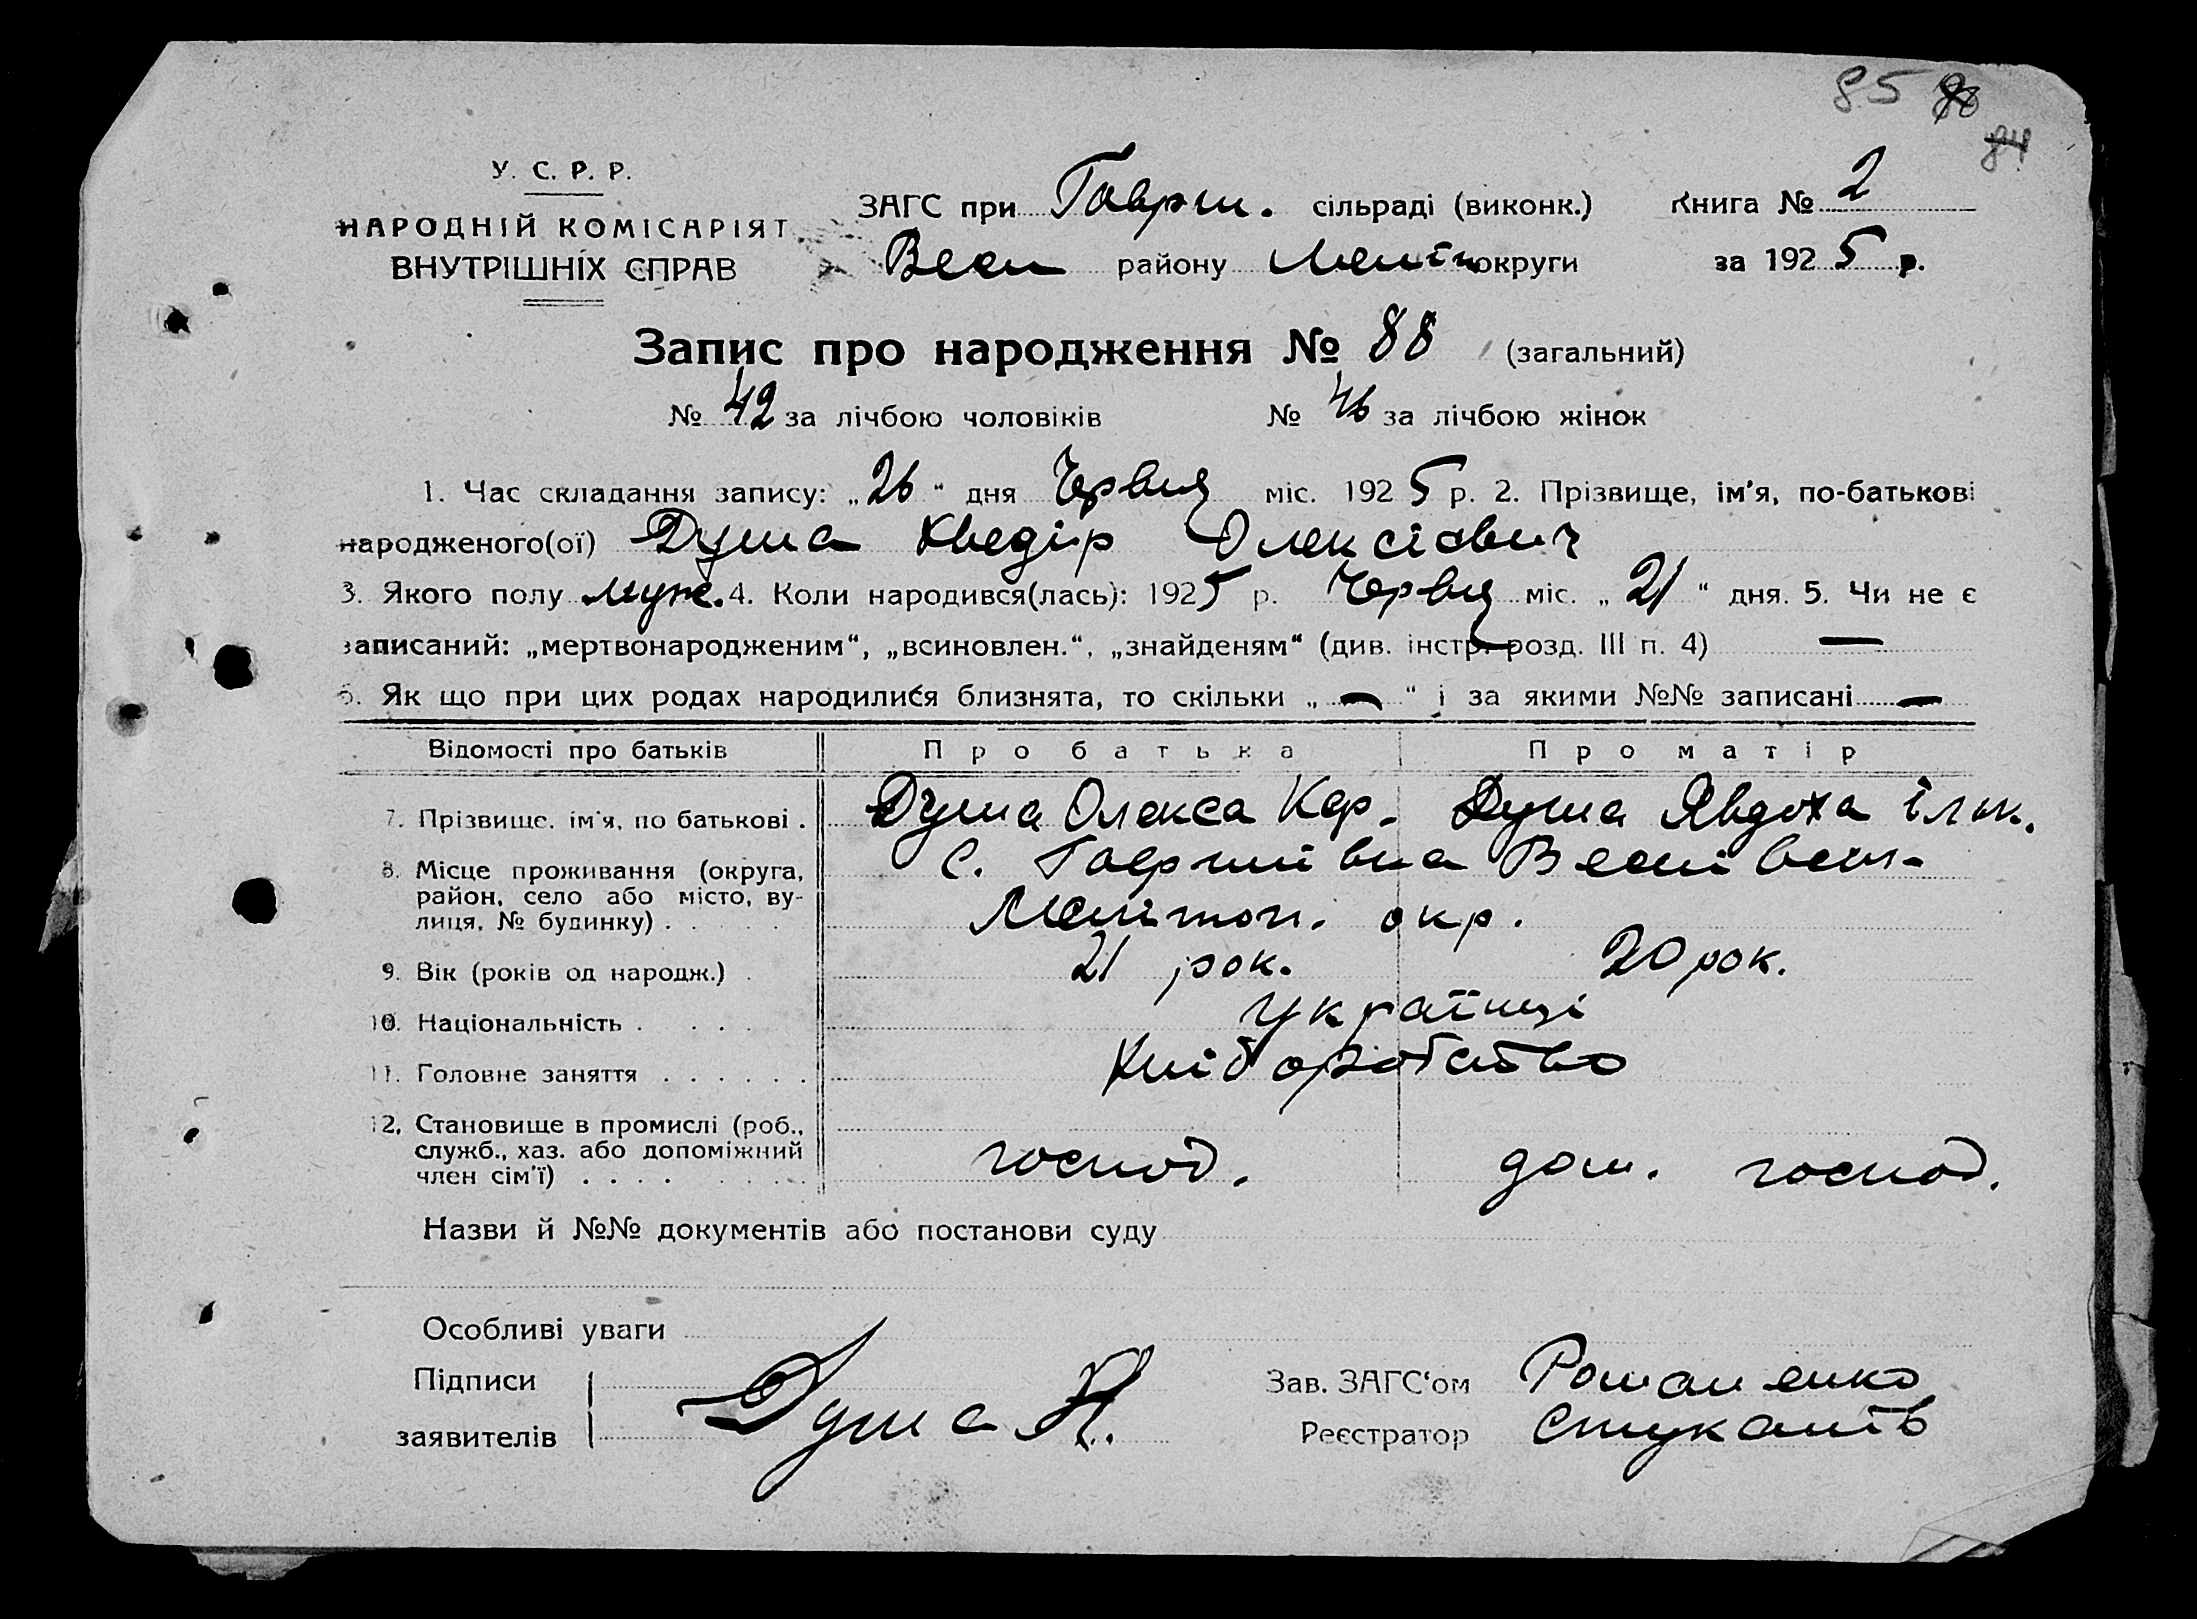 85 86
84
У. С. Р. Р.
НАРОДНІЙ КОМІСАРІЯТ
ВНУТРІШНІХ СПРАВ
ЗАГС при Гаврил. сільраді (виконк.) Книга № 2
Весел району Меліт округи за 1925 р.
Запис про народження № 88 (загальний)
№ 42 за лічбою чоловіків № 46 за лічбою жінок
1. Час складання запису: „26“ дня Червця міс. 1925 р. 2. Прізвище, ім'я, по-батькові
народженого(ої) Душа Хведір Олексієвич
3. Якого полу муж. 4. Коли народився(лась): 1925 р. Червця міс. „21“ дня. 5. Чи не є
записаний: „мертвонародженим“, „всиновлен.“, „знайденям“ (див. інстр. розд. III п. 4) —
6. Як що при цих родах народилися близнята, то скільки „—“ і за якими №№ записані —
Відомості про батьків Про батька Про матір
7. Прізвище, ім'я, по батькові . Душа Олекса Кар. Душа Явдоха Ільк.
8. Місце проживання (округа, с. Гаврилівка Веселівськ-
район, село або місто, ву-
лиця, № будинку) . Мелітоп. окр.
9. Вік (років од народж.) . 21 рок. 20 рок.
10. Національність . . . . Українці
11. Головне заняття . . . . . . Хліборобство
12. Становище в промислі (роб.,
служб., хаз. або допоміжний господ. дом. господ.
член сім'ї) . . . .
Назви й №№ документів або постанови суду
Особливі уваги
Підписи Зав. ЗАГС‘ом Романенко
заявителів Душа Реєстратор Стукалів